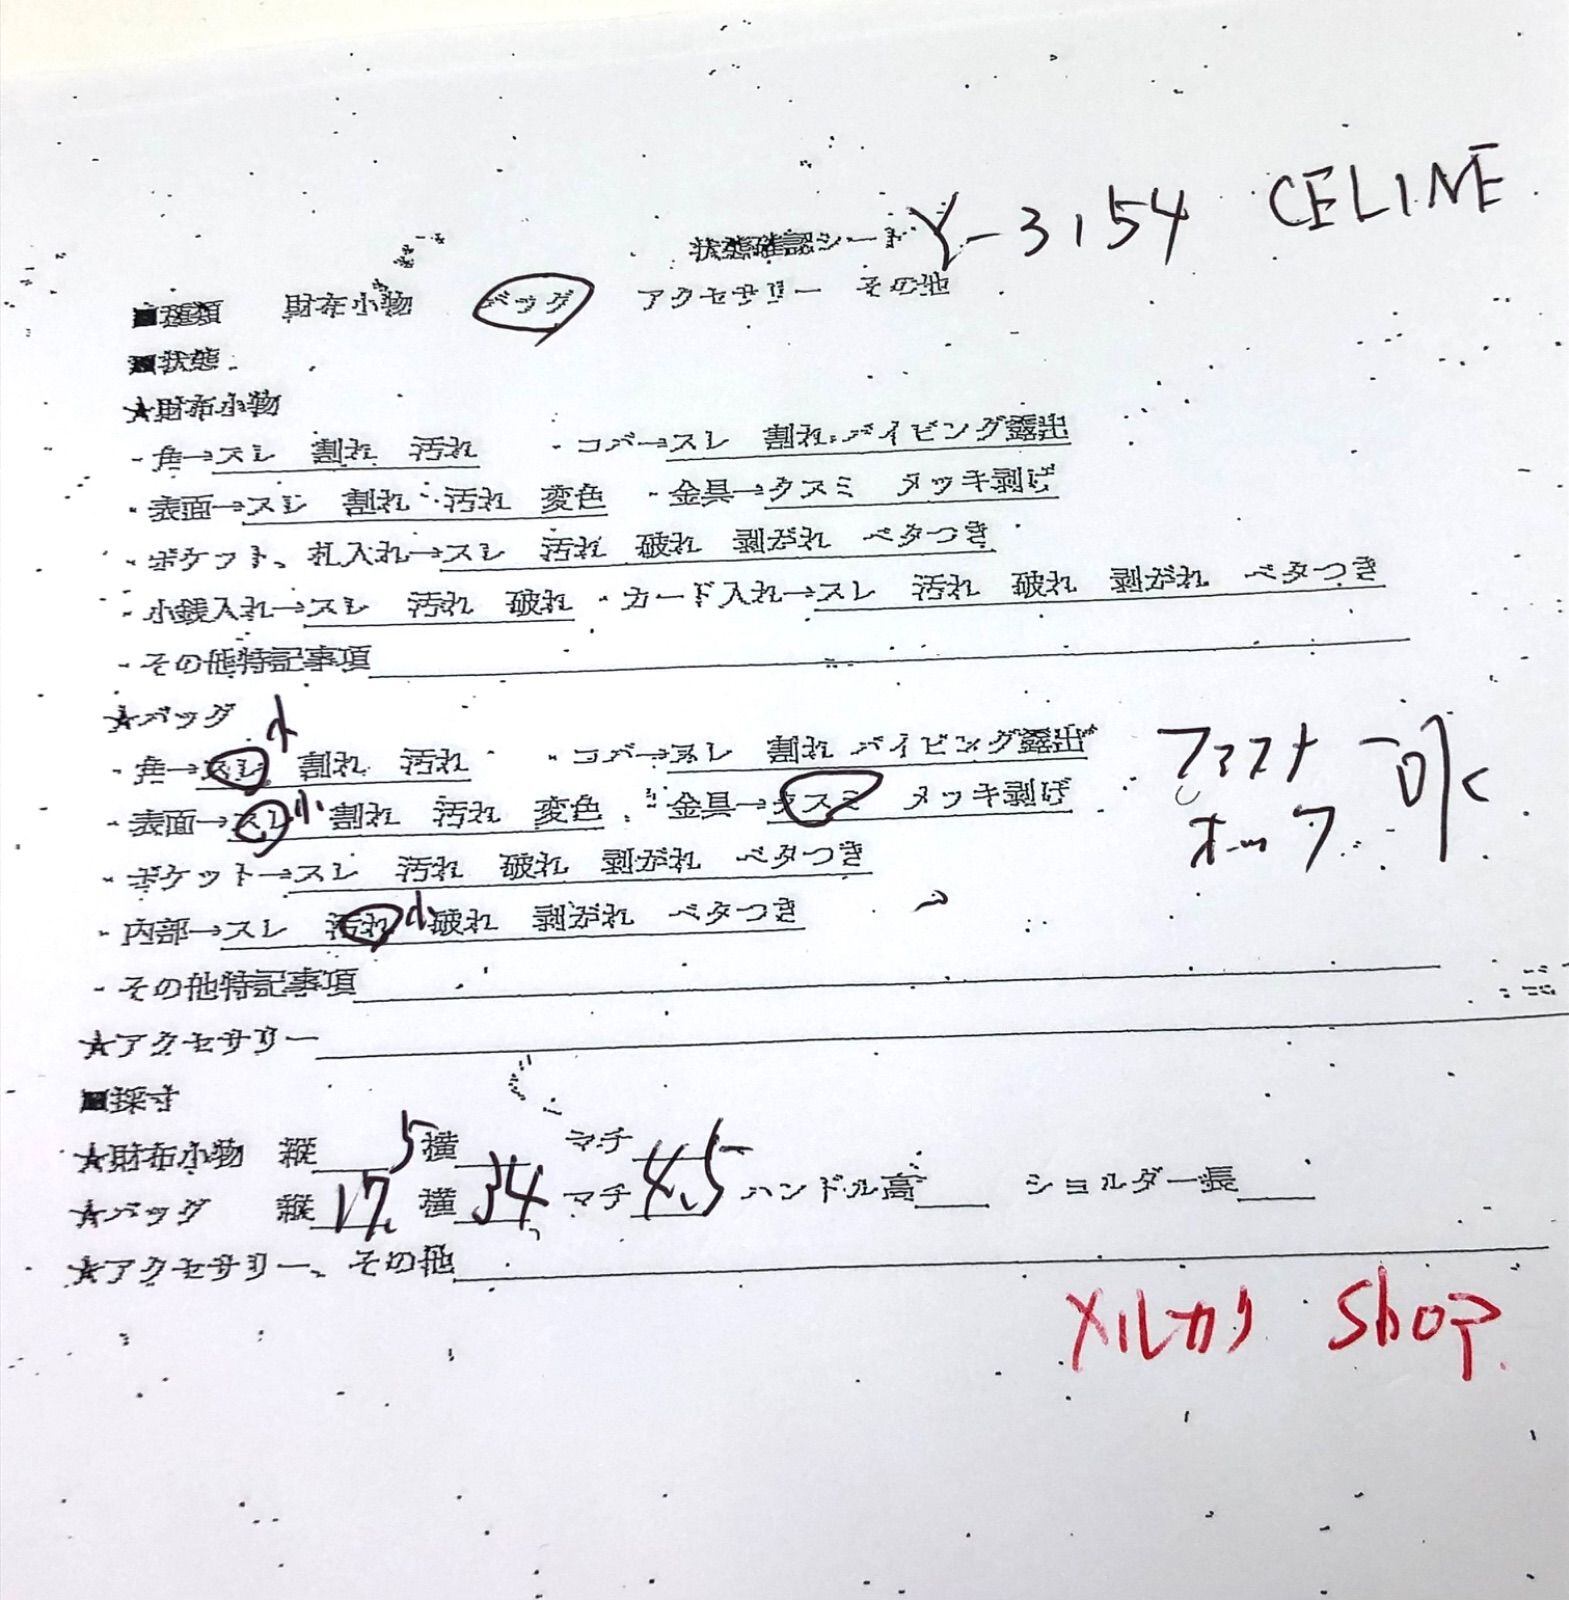 状態確認シート Y-3154 CELINE
■種類 財布小物 バッグ アクセサリー その他
■状態
★財布小物
・角→スレ 割れ 汚れ ・コバ→スレ 割れ パイピング露出
・表面→スレ 割れ 汚れ 変色 ・金具→クスミ メッキ剥げ
・ポケット、札入れ→スレ 汚れ 破れ 剥がれ ベタつき
・小銭入れ→スレ 汚れ 破れ ・カード入れ→スレ 汚れ 破れ 剥がれ ベタつき
・その他特記事項
★バッグ
・角→スレ 小 割れ 汚れ ・コバ→スレ 割れ パイピング露出
・表面→スレ 小 割れ 汚れ 変色 ・金具→クスミ メッキ剥げ
ファスナー
ホック
・ポケット→スレ 汚れ 破れ 剥がれ ベタつき
・内部→スレ 汚れ 小 破れ 剥がれ ベタつき
・その他特記事項
★アクセサリー
■採寸
★財布小物 縦 横 マチ
★バッグ 縦 17.5 横 34 マチ 4.5 ハンドル高 ショルダー長
★アクセサリー、その他
メルカリ Shop